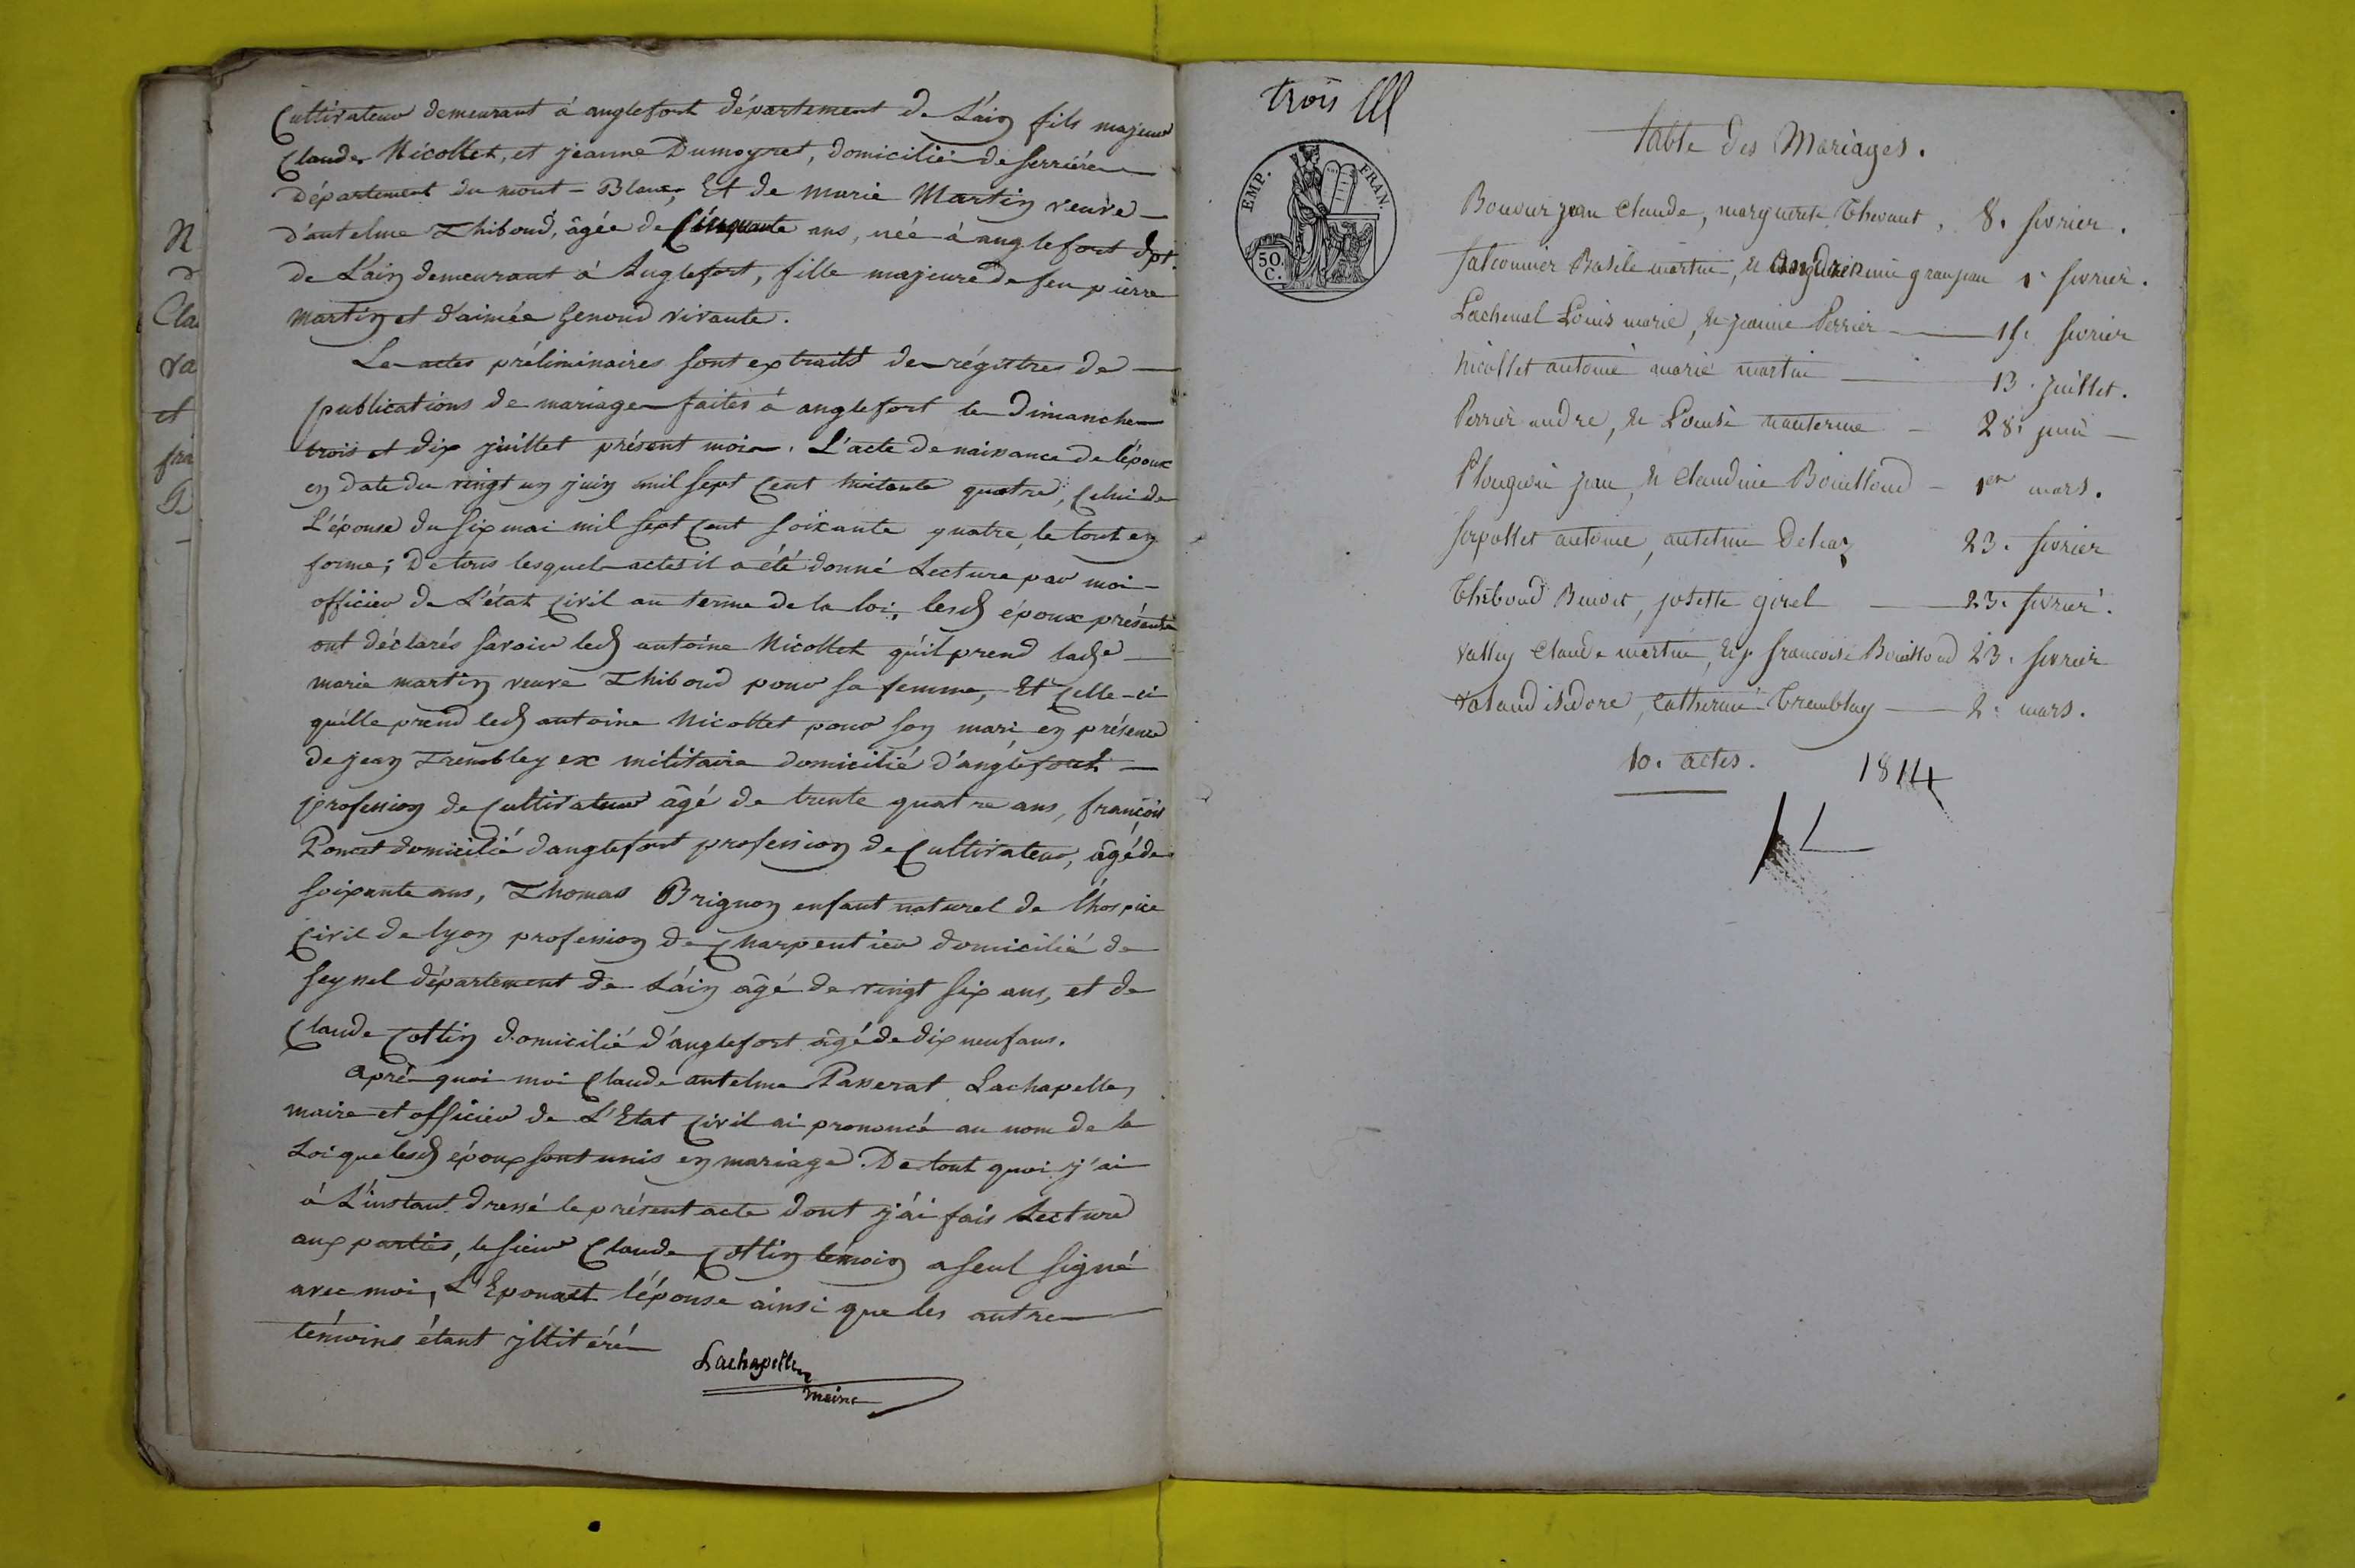 Cultivateur demeurant à anglefort département de L'ain fils majeur
Claude Nicollet, et jeanne Dumoyret, domicilié de serriére
Département du mont-Blanc, Et de marie Martin veuve
d'antelme Thiboud, âgée de Cinquante ans, née à anglefort dpt.
de L'ain demeurant à Anglefort, fille majeure de feu pierre
martin et d'aimée Genoud vivante.
Les actes préliminaires sont extraits des régistres de
publications de mariages faites à anglefort les Dimanches
trois et dix juillet présent mois. L'acte de naissance de l'époux
en date du vingt un juin mil sept cent huitante quatre, Celui de
L'épouse du six mai mil sept Cent soixante quatre, le tout en
forme; De tous lesquels actes il a été donné Lecture par moi
officier de L'état Civil au terme de la loi, lesd époux présents
ont déclarés savoir led antoine Nicollet qu'il prend lade
marie martin veuve Thiboud pour sa femme, Et Celle-ci
qu'elle prend led antoine Nicollet pour son mari en présence
de jean Trembley ex militaire domicilié d'anglefort
profession de Cultivateur âgé de trente quatre ans, françois
Poncet domicilié d'anglefort profession de Cultivateur, âgé de
soixante ans, Thomas Brignon enfant naturel de l'hospice
Civil de lyon profession de Charpentier domicilié de
seyssel département de L'ain âgé de vingt six ans, et de
Claude Cottin domicilié d'anglefort âgé de dix neuf ans.
Après quoi moi Claude antelme Passerat Lachapelle,
maire et officier de L'Etat Civil ai prononcé au nom de la
Loi que lesd époux sont unis en mariage. De tout quoi j'ai
à L'instant dressé le présent acte dont j'ai fais Lecture
aux parties, le sieur Claude Cottin témoin a seul signé
avec moi, L'Epoux et l'épouse ainsi que les autres
témoins étant jllitérés
Lachapelle
maire
N
d
Cla
va
et
fra
trois
EMP. FRAN.
50. C.
Table des Mariages.
Bouvier jean Claude, marguerite Thevant, 8. fevrier.
falconnier Basile martin, et granjean 1 fevrier.
Lachenal Louis marie, et jeanne Perrier 15. fevrier
Nicollet antoine marie martin 13. juillet.
Perrier andre, et Louise nanterme 28. juin
Plonguin jean, et Claudine Bouilloud 1er mars.
serpollet antoine, antelme Deluaz 23. fevrier
Thiboud Benoit, josette girel 23. fevrier.
vallin Claude martin, et f. francoise Bouilloud 23. fevrier
volaud isidore, Catherine Tremblay 2. mars.
10. actes. 1814